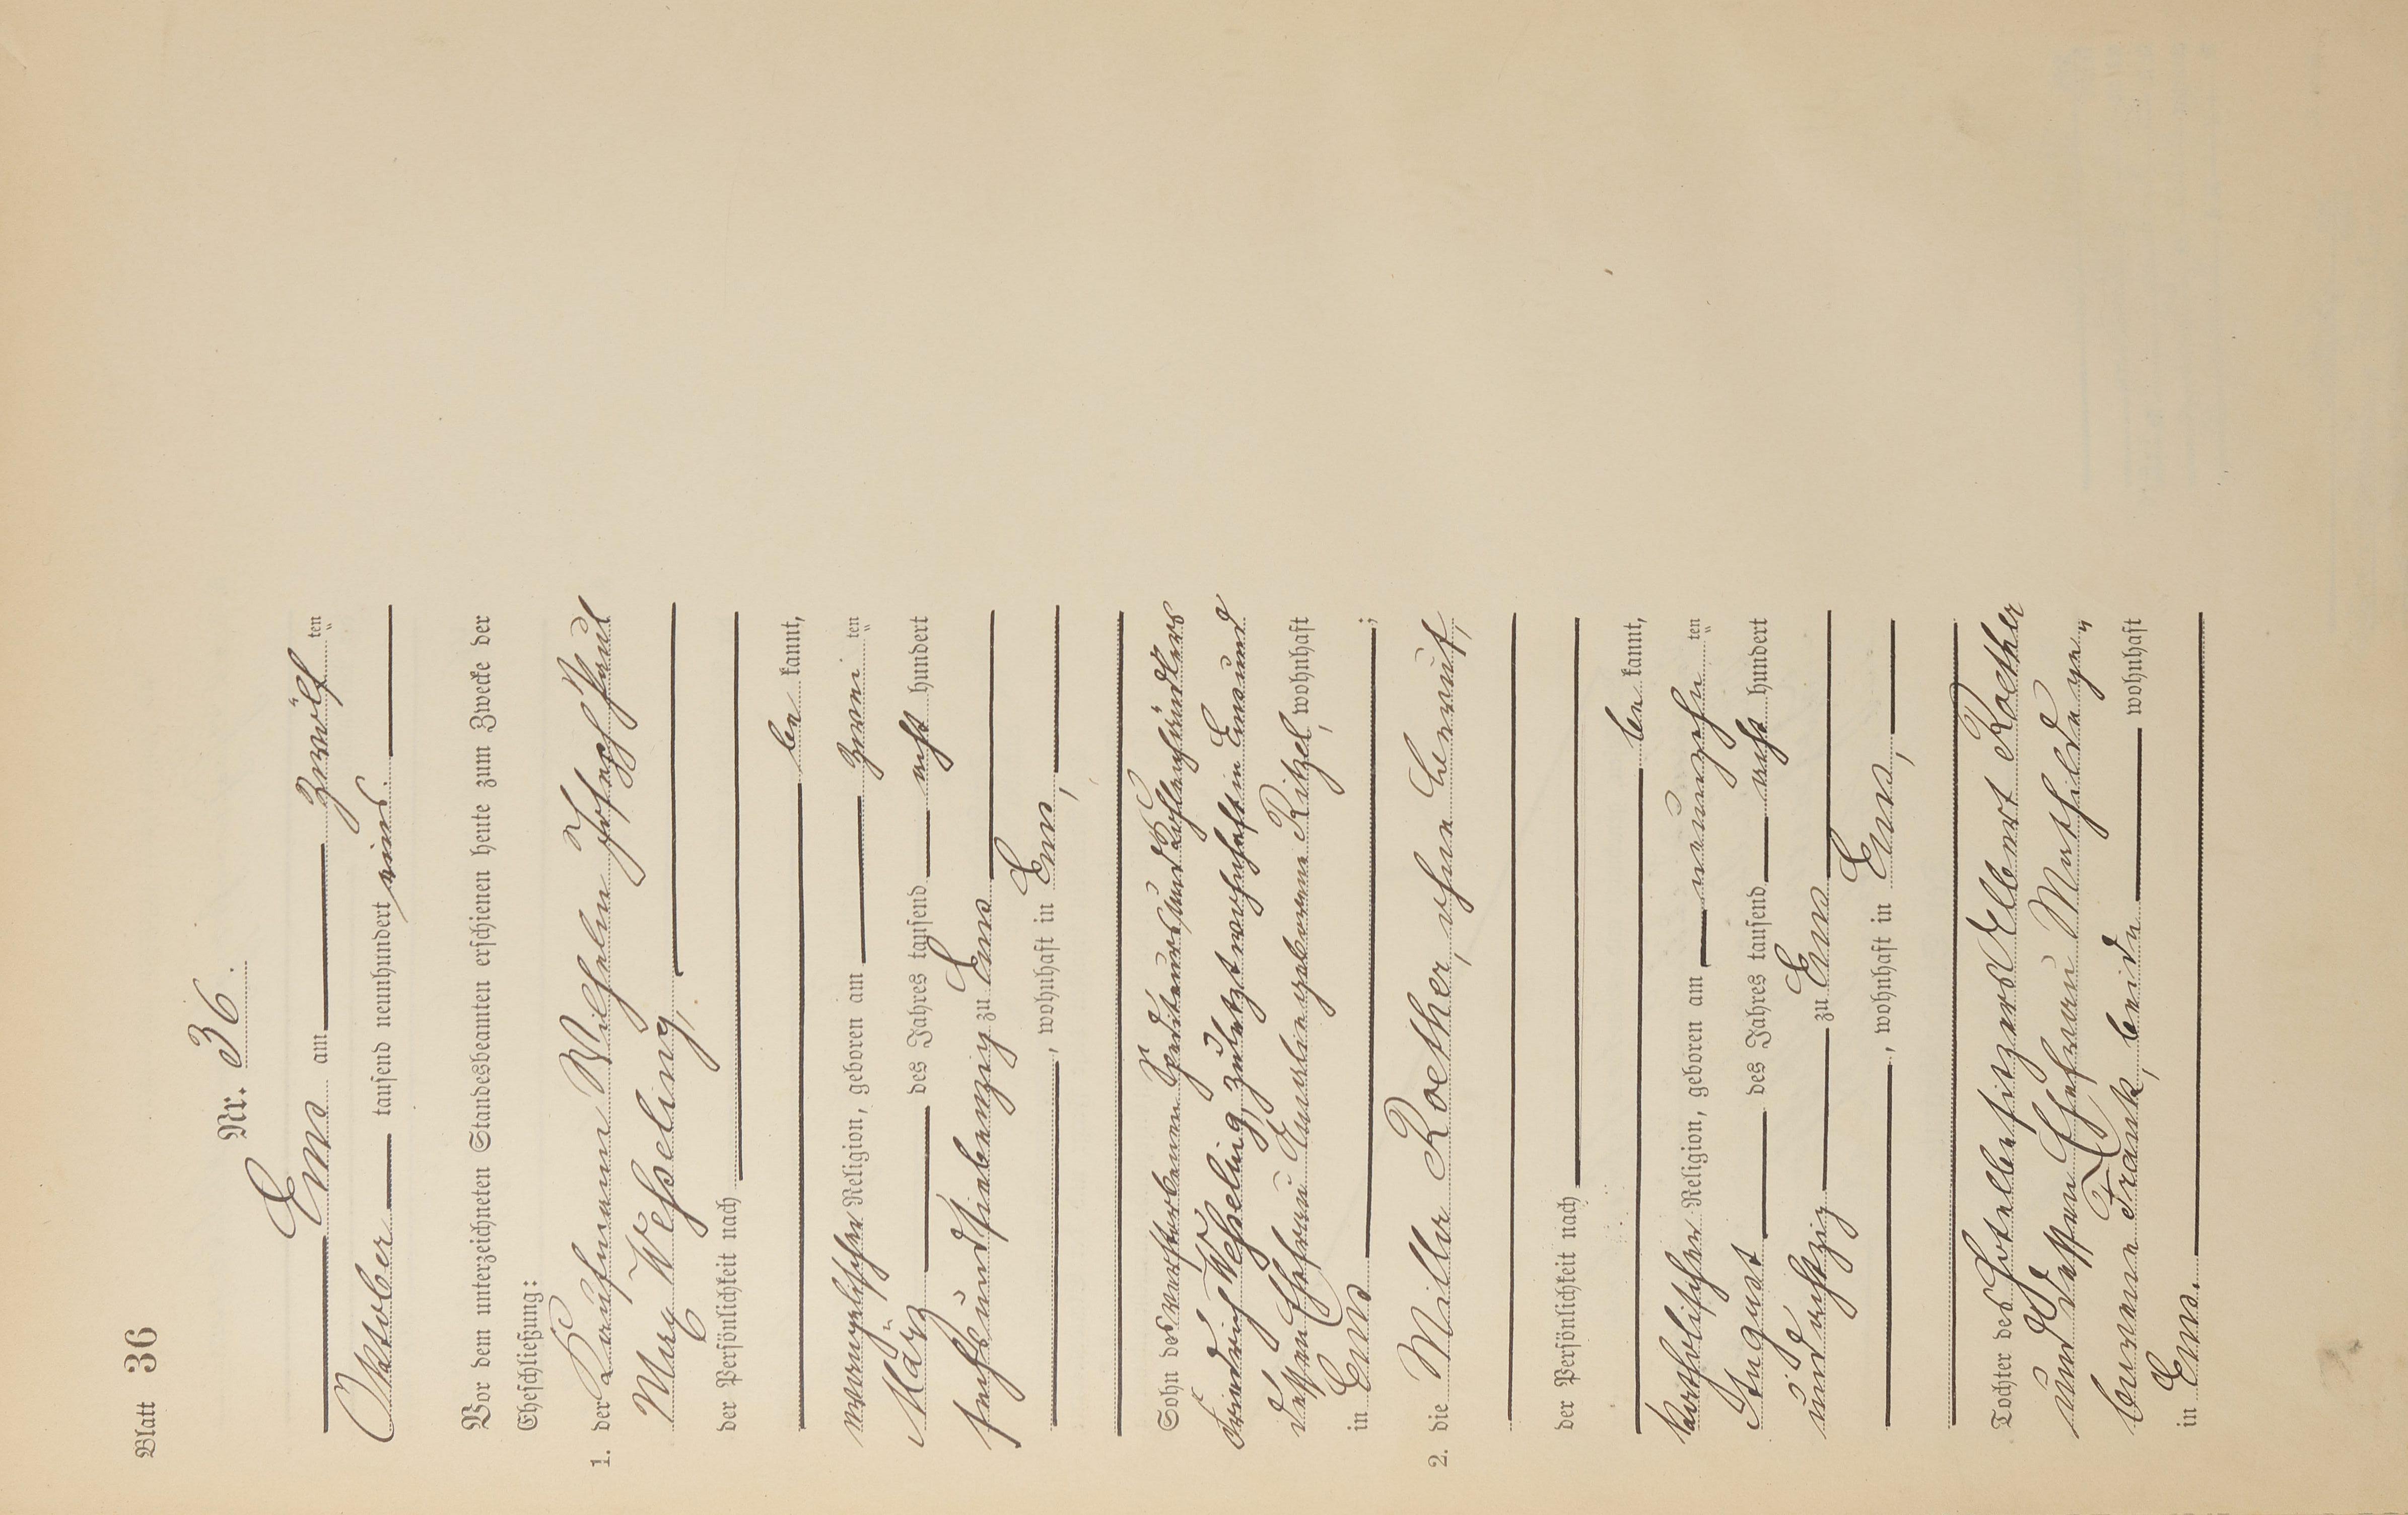 Blatt 36
Nr. 36.
Ems am zwölf ten
Oktober tausend neunhundert eins.
Vor dem unterzeichneten Standesbeamten erschienen heute zum Zwecke der
Eheschließung:
1. der Kaufmann Wilhelm Joseph Paul
Max Weßeling,
der Persönlichkeit nach
be kannt,
evangelischer Religion, geboren am zwei ten
März des Jahres tausend acht hundert
sechsundsiebenzig zu Ems
, wohnhaft in Ems,
Sohn des verstorbenen Spediteurs und Kohlenhändlers
Friedrich Weßeling, zuletzt wohnhaft in Ems und
dessen Ehefrau Karoline geborene Ritzel, wohnhaft
in Ems ;
2. die Milla Roether, ohne Beruf,
der Persönlichkeit nach
be kannt,
katholischer Religion, geboren am neunzehn ten
August des Jahres tausend acht hundert
und achtzig zu Ems
, wohnhaft in Ems,
Tochter des Hotelbesitzers Albert Roether
und dessen Ehefrau Mathilde ge-
borene Frank, beide wohnhaft
in Ems.